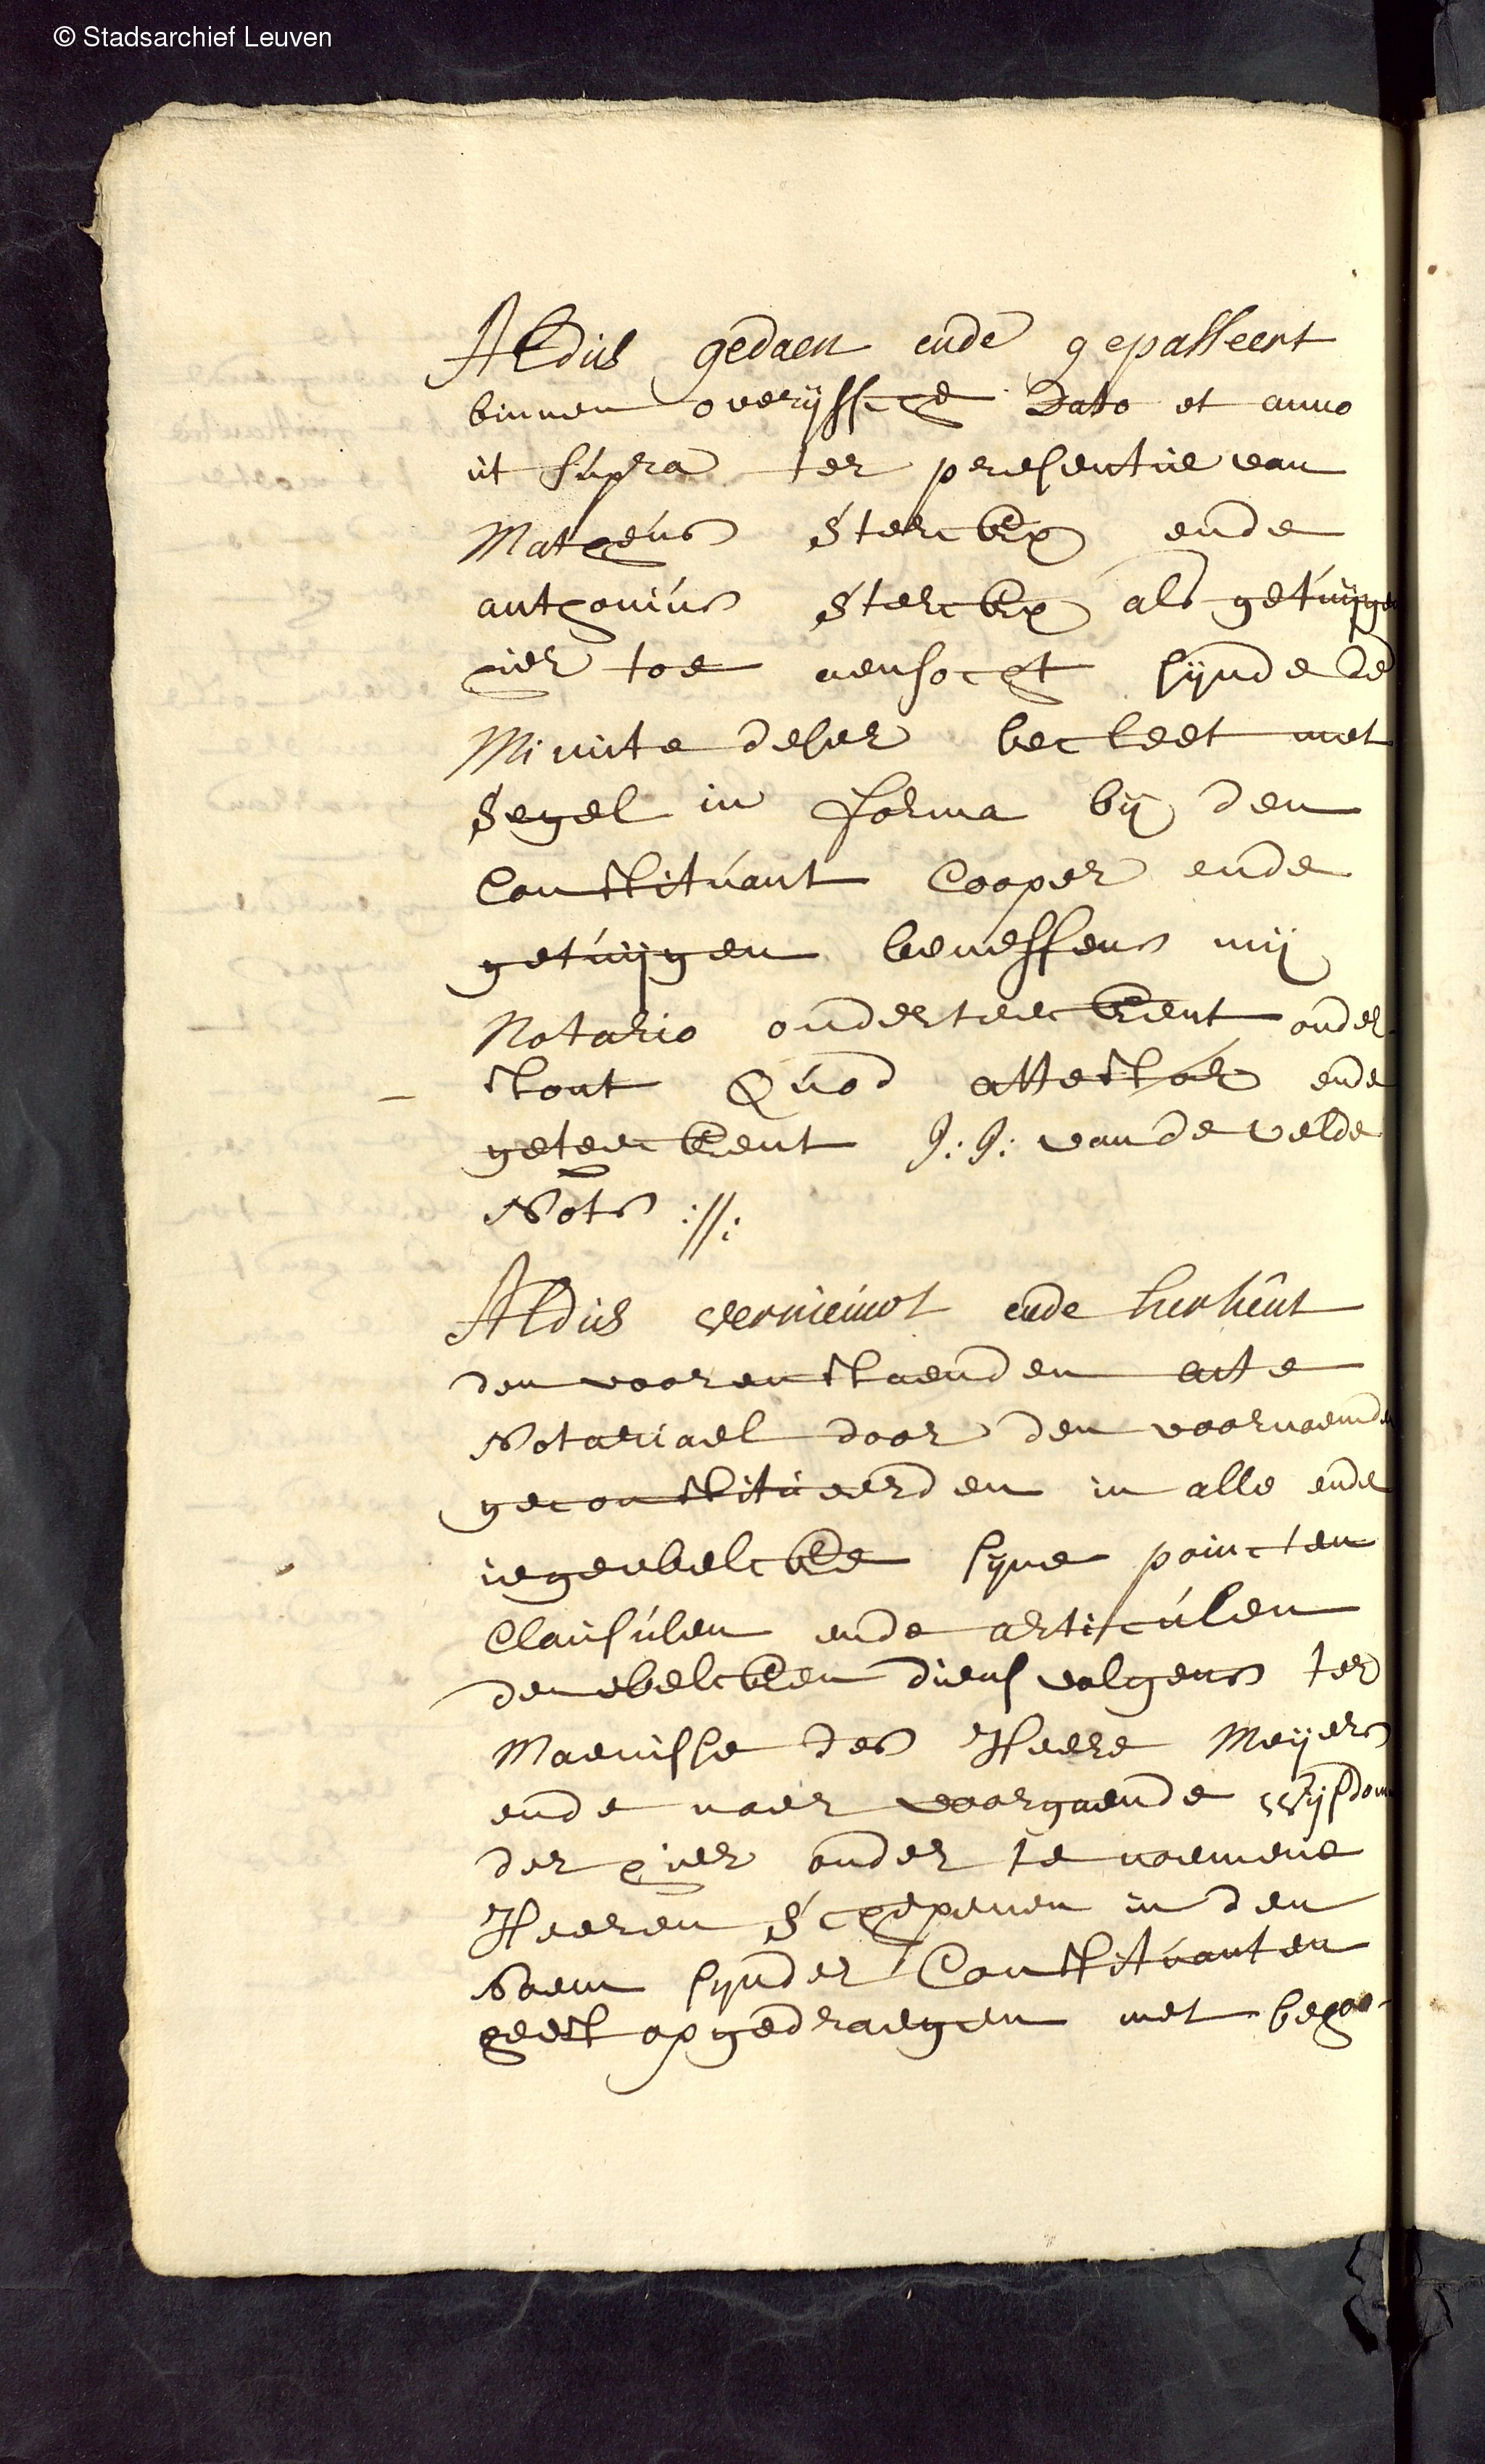 © Stadsarchief Leuven
Aldus gedaen ende gepasseert
binnen overijssche Dato et anno
ut supra ter presentie van
Matheus Sterckx ende
anthonius Sterckx als getuijgen
hier toe aensocht sijnde de
Minute deser becleet met
Segel in forma bij den
Constituant Cooper ende
getuijgen beneffens mij
Notario onderteeckent onder
stont Quod attestor ende
geteeckent J: J: vande velde
Nots ://:
Aldus vernieuwt ende herkent
den voorenstaenden acte
Notariael door den voornoemden
geconstitueerden in alle ende
iegewelcke sijne poincten
Clausulen ende articulen
den welcken dienvolgens ter
Maenisse des Heere Meijers
ende naer voorgaende wijsdom
der hier onder te noemene
Heeren Schepenen in den
naem sijnder Constituanten
heeft opgedraegen met behoo-